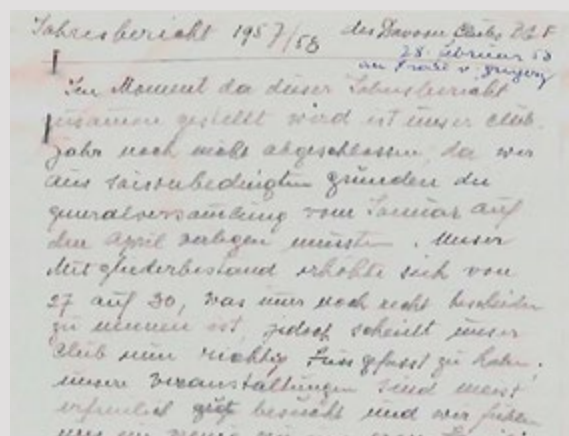 Jahresbericht 1957/58 des Davoser Clubs
28. Februar 58
an Frau v.
Im Moment da dieser Jahresbericht
zusamen gestellt wird ist unser Club-
Jahr noch nicht abgeschlossen, da wir
aus saisonbedingten gründen die
generalversamlung vom Januar auf
den April verlegen mussten. Unser
Mitgliederbestand erhöhte sich von
27 auf 30, was noch recht bescheiden
zu nennen ist, jedoch scheint unser
Club nun richtig Fuss gefasst zu haben.
unsere Veranstaltungen sind meist
erfreulich gut besucht und wir